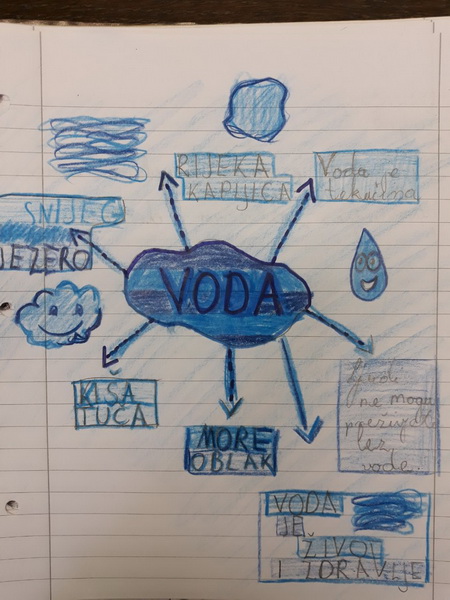 RIJEKA
KAPLJICA
Voda e
SNIJEG
JEZERO
VODA
KIŠA
TUČA
MORE
OBLAK
Ljudi
ne mogu
bez
vode.
VODA
JE
ŽIVOT
I ZDRAVLJE